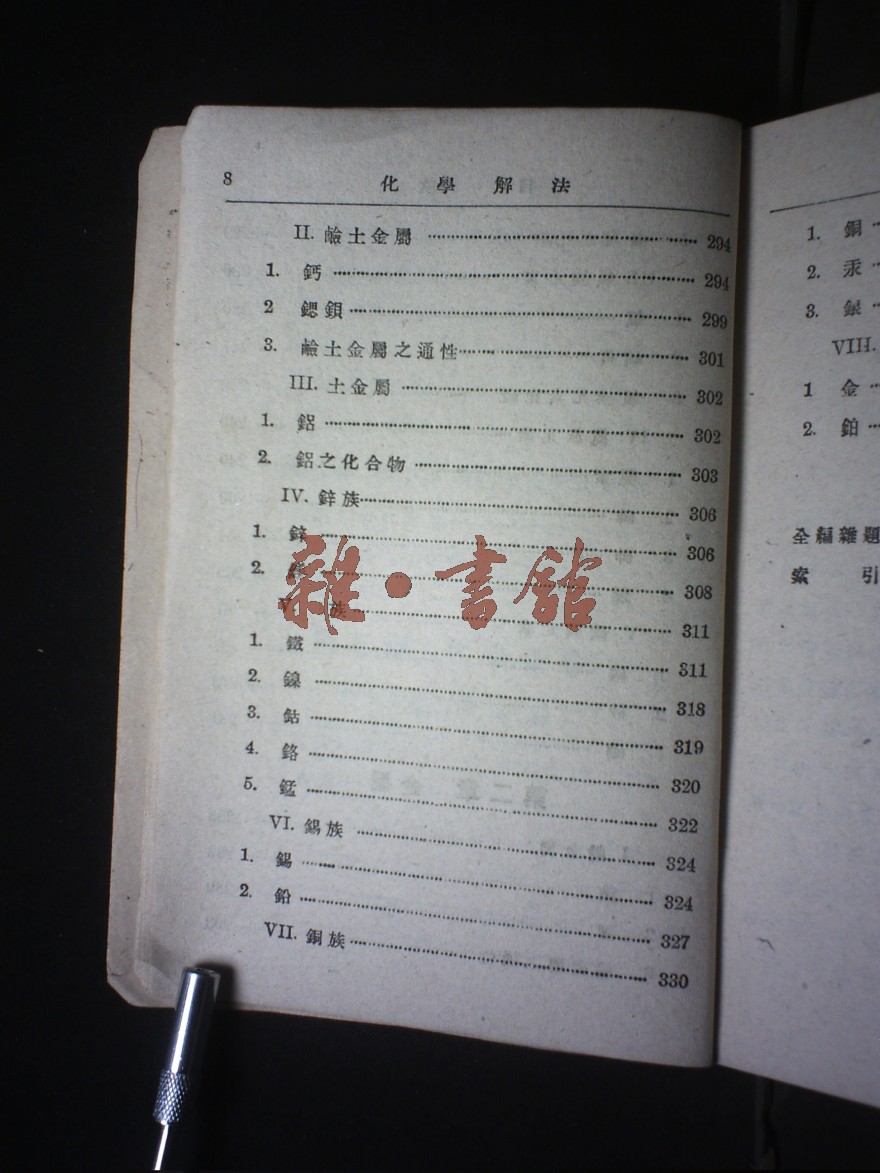 8 化學解法
II. 鹼土金屬 294
1. 鈣 294
2 鍶鋇 299
3. 鹼土金屬之通性 301
III. 土金屬 302
1. 鋁 302
2. 鋁之化合物 303
IV. 鋅族 306
1. 鋅 306
2. 308
V. 族 311
1. 鐵 311
2. 鎳 318
3. 鈷 319
4. 鉻 320
5. 錳 322
VI. 錫族 324
1. 錫 324
2. 鉛 327
VII. 銅族 330
雜·書館
1. 銅
2. 汞
3. 銀
VIII.
1 金
2. 鉑
全編雜題
索引